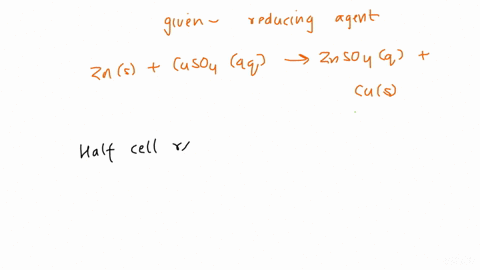 given - reducing agent
Zn(s) + CuSO4 (aq) → ZnSO4 (q) +
Cu(s)
Half cell r